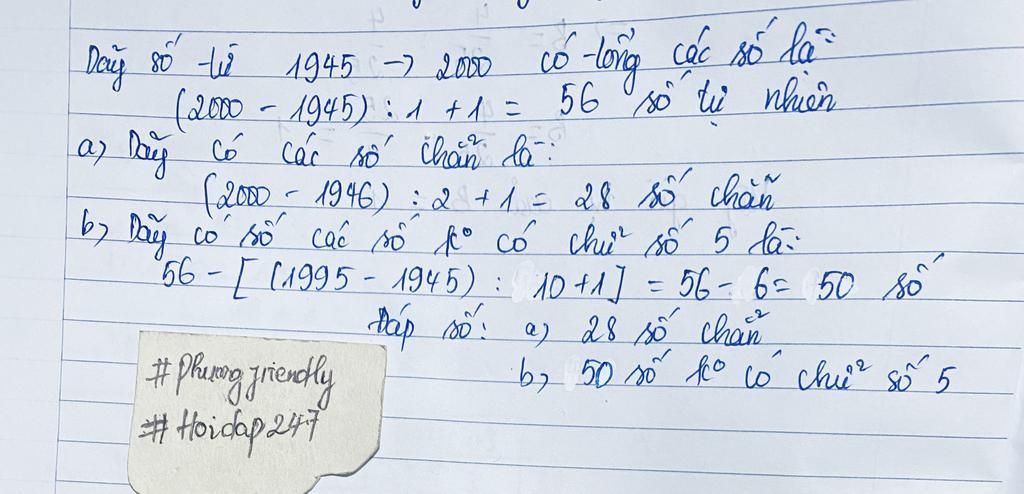 Dãy số từ 1945 -> 2000 có tổng các số là:
(2000 - 1945) : 1 + 1 = 56 số tự nhiên
a) Dãy có các số chẵn là:
(2000 - 1946) : 2 + 1 = 28 số chẵn
b) Dãy có số các số kº có chữ số 5 là:
56 - [ (1995 - 1945) : 10 + 1 ] = 56 - 6 = 50 số
Đáp số: a) 28 số chẵn
b) 50 số kº có chữ số 5
#Phuongfriendly
#Hoidap247